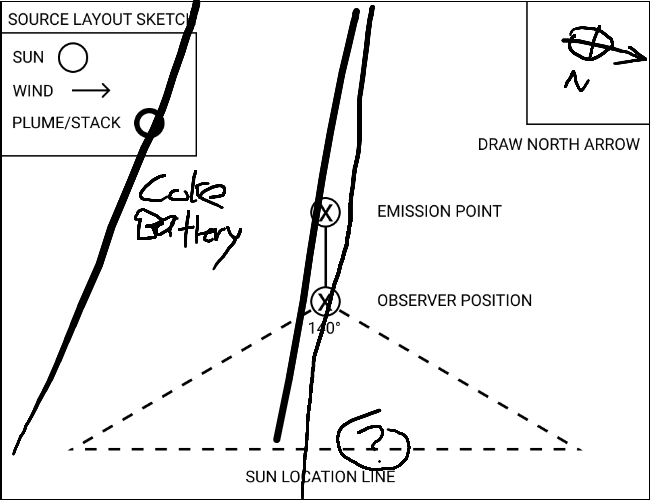 SOURCE LAYOUT SKETCH
SUN
WIND
PLUME/STACK
N
DRAW NORTH ARROW
Coke
Battery
X EMISSION POINT
X OBSERVER POSITION
140°
?
SUN LOCATION LINE